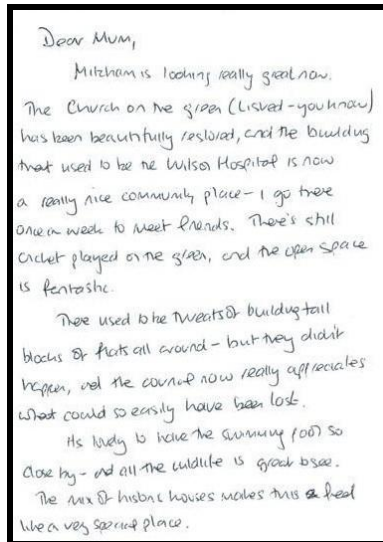 Dear Mum,
Mitcham is looking really great now.
The Church on the green (Listed - you know)
has been beautifully restored, and the building
that used to be the Wilson Hospital is now
a really nice community place - I go there
once a week to meet friends. There's still
cricket played on the green, and the open space
is fantastic.
There used to be threats of building tall
blocks of flats all around - but they didn't
happen, and the council now really appreciates
what could so easily have been lost.
Its lovely to have the swimming pool so
close by - and all the wildlife is great to see.
The mix of historic houses makes this feel
like a very special place.